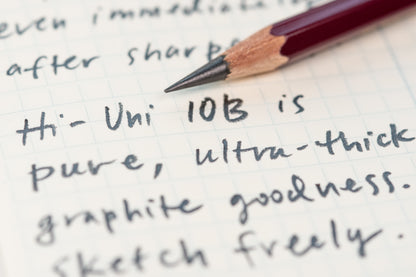 even immediately
after sharp
Hi-Uni 10B is
pure, ultra-thick
graphite goodness.
sketch freely.